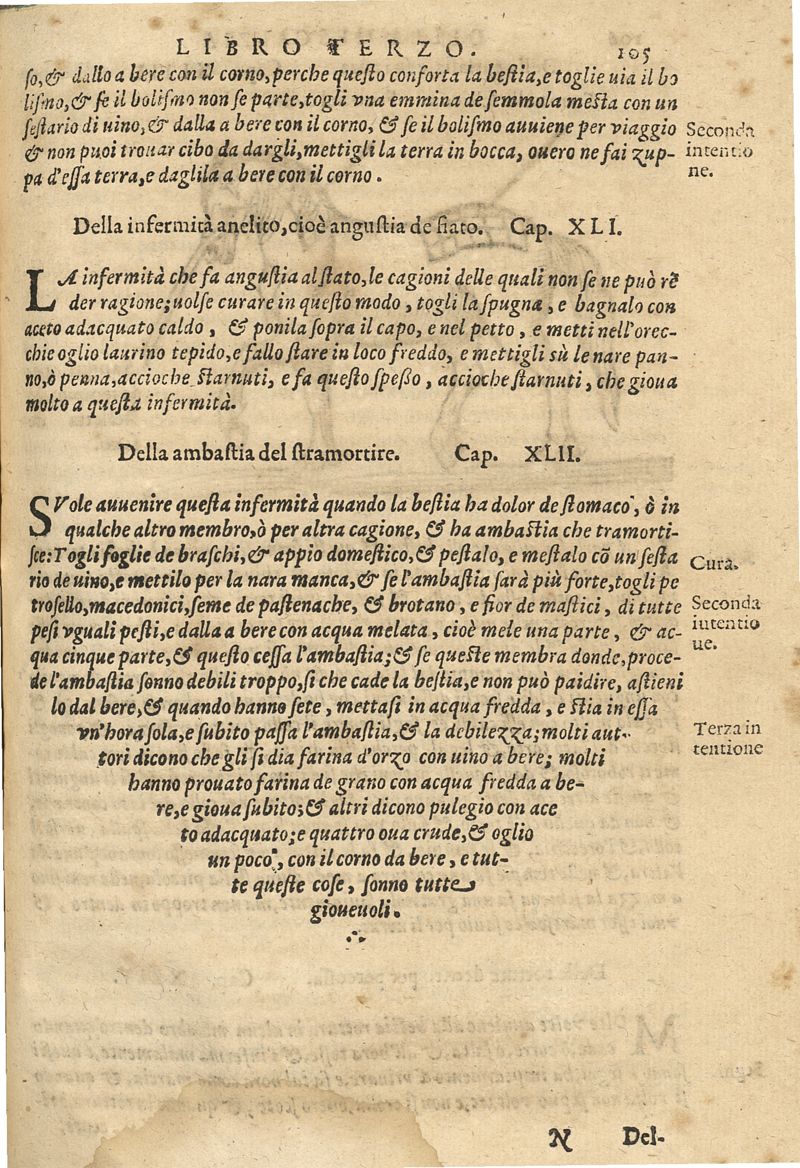 LIBRO TERZO. 105
ſo,& dallo a bere con il corno,perche queſto conforta la beſtia,e toglie uia il bo
liſmo,& ſe il boliſmo non ſe parte,togli vna emmina de ſemmola meſta con un
ſeſtario di uino,& dalla a bere con il corno, & ſe il boliſmo auuiene per viaggio
& non puoi trouar cibo da dargli,mettigli la terra in bocca, ouero ne fai zup-
pa d'eſſa terra,e daglila a bere con il corno.
Seconda
intentio
ne.
Della infermità anelito,cioè anguſtia de fiato. Cap. XLI.
LA infermità che fa anguſtia al fiato,le cagioni delle quali non ſe ne può rẽ
der ragione;uolſe curare in queſto modo, togli la ſpugna, e bagnalo con
aceto adacquato caldo, & ponila ſopra il capo, e nel petto, e metti nell'orec-
chie oglio laurino tepido,e fallo ſtare in loco freddo, e mettigli sù le nare pan-
no,ò penna,accioche ſtarnuti, e fa queſto ſpeßo, accioche ſtarnuti, che gioua
molto a queſta infermità.
Della ambaſtia del ſtramortire. Cap. XLII.
SVole auuenire queſta infermità quando la beſtia ha dolor de ſtomaco, ò in
qualche altro membro,ò per altra cagione, & ha ambaſtia che tramorti-
ſce:Togli foglie de braſchi,& appio domeſtico,& peſtalo, e meſtalo cõ un ſeſta
rio de uino,e mettilo per la nara manca,& ſe l'ambaſtia ſarà più forte,togli pe
troſello,macedonici,ſeme de paſtenache, & brotano, e fior de maſtici, di tutte
peſi vguali peſti,e dalla a bere con acqua melata, cioè mele una parte, & ac-
qua cinque parte,& queſto ceſſa l'ambaſtia;& ſe queſte membra donde,proce-
de l'ambaſtia ſonno debili troppo,ſi che cade la beſtia,e non può paidire, aſtieni
lo dal bere,& quando hanno ſete, mettaſi in acqua fredda, e ſtia in eſſa
vn'hora ſola,e ſubito paſſa l'ambaſtia,& la debilezza;molti aut-
tori dicono che gli ſi dia farina d'orzo con uino a bere; molti
hanno prouato farina de grano con acqua fredda a be-
re,e gioua ſubito;& altri dicono pulegio con ace
to adacquato;e quattro oua crude,& oglio
un poco, con il corno da bere, e tut-
te queſte coſe, ſonno tutte
gioueuoli.
Cura.
Seconda
intentio
ne.
Terza in
tentione
N Del-